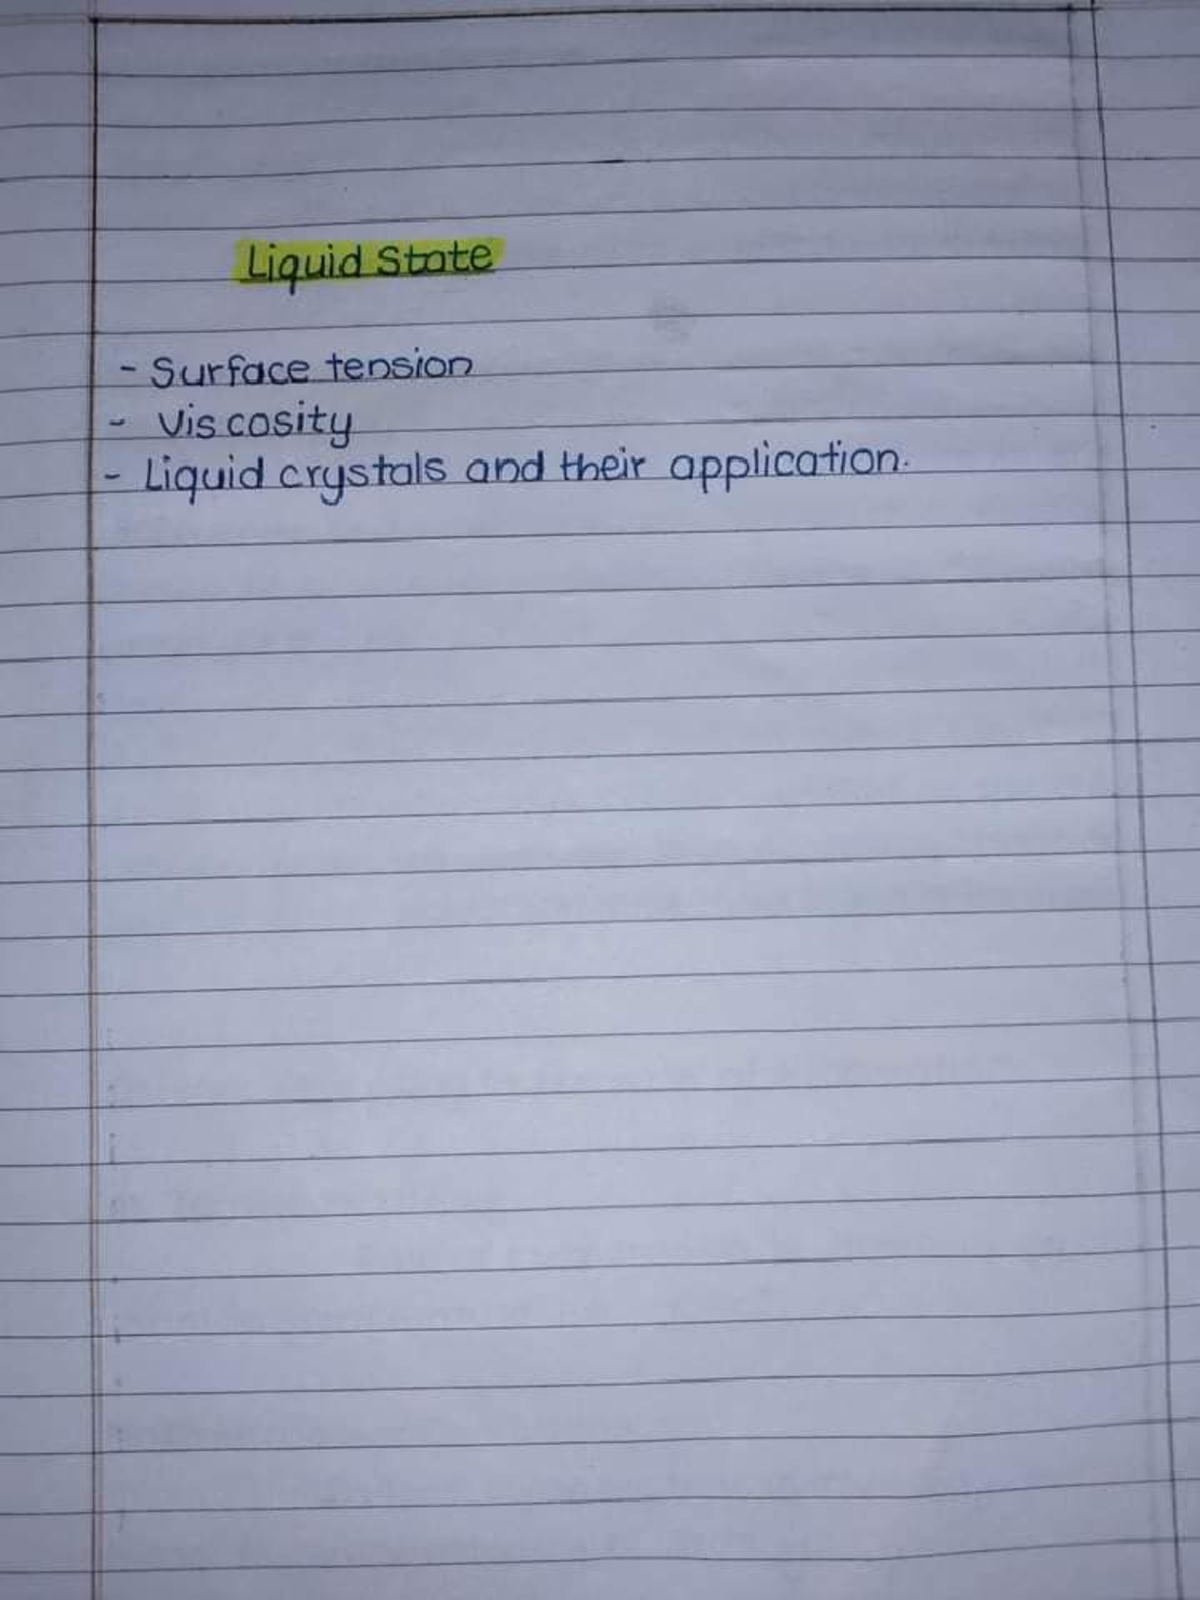 Liquid State
- Surface tension
- Viscosity
- Liquid crystals and their application.